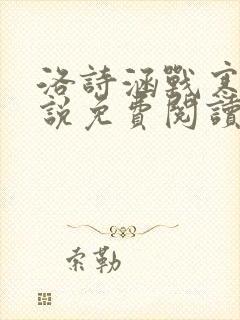 洛詩涵戰寒
說免費閱讀
索勒